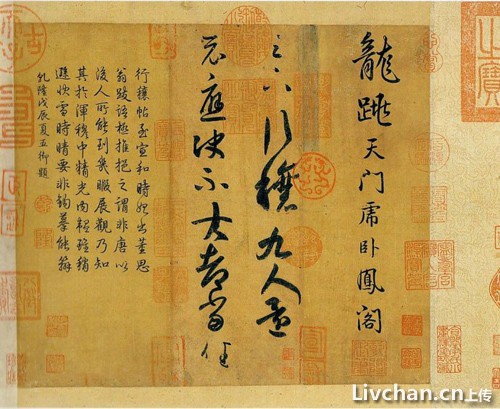 龍跳天門虎臥鳳閣
足下行穰九人還
示應決不大都當佳
行穰帖至宣和時始出董思
翁跋語極推挹之謂非唐以
後人所能到幾暇展觀乃知
其於渾穆中精光內韞雖稍
遜快雪時晴要非鉤摹能辦
乾隆戊辰夏五御題
Livchan.cn上传